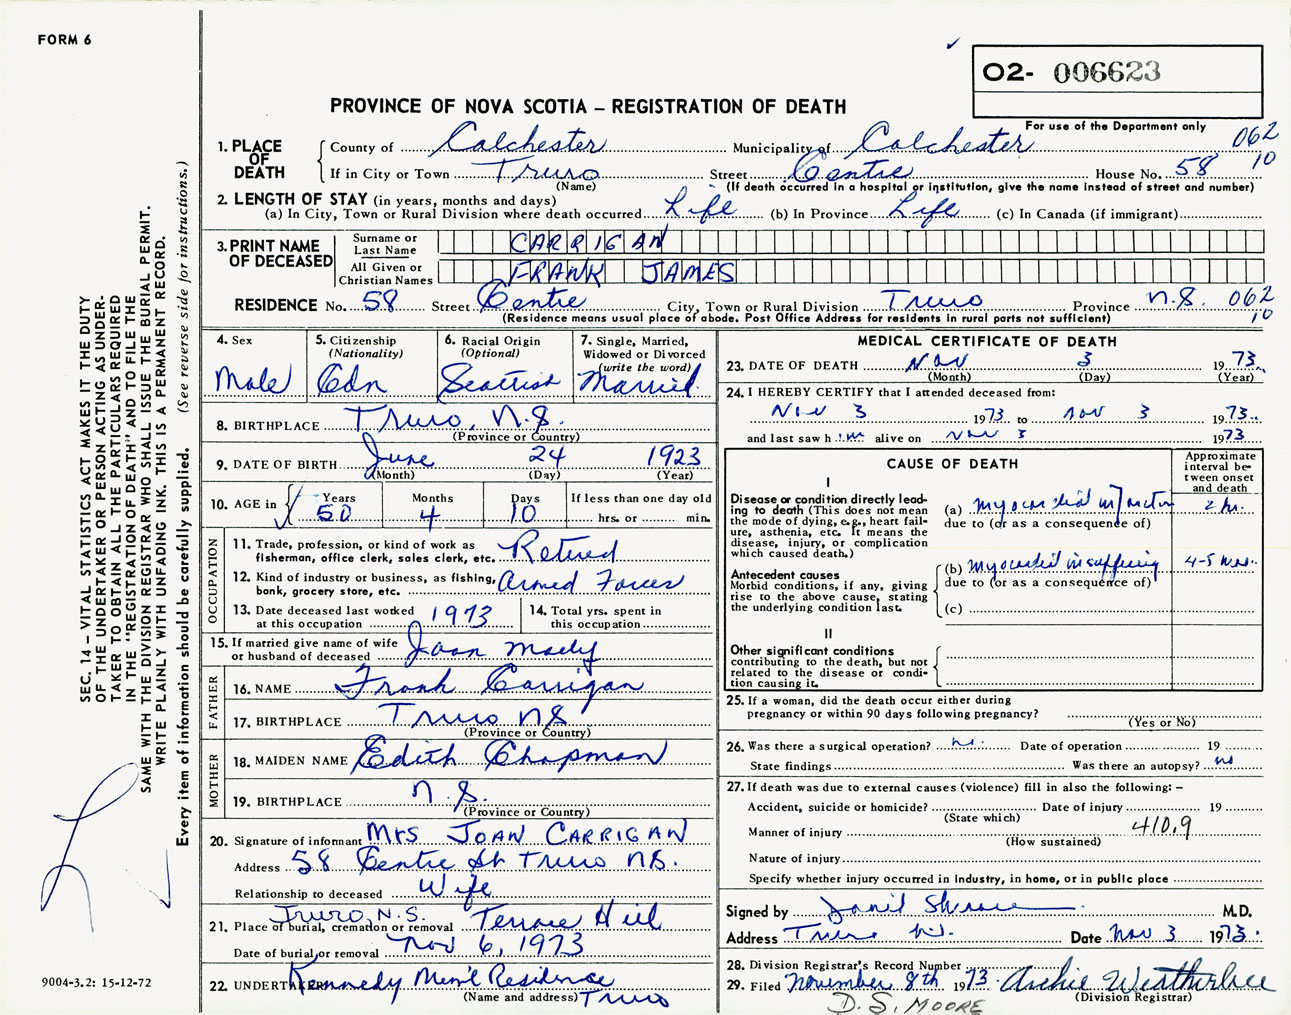 FORM 6
O2- 006623
PROVINCE OF NOVA SCOTIA – REGISTRATION OF DEATH
For use of the Department only
062
10
1. PLACE OF DEATH
County of Colchester Municipality of Colchester
If in City or Town Truro Street Centre House No. 58
(Name) (If death occurred in a hospital or institution, give the name instead of street and number)
2. LENGTH OF STAY (in years, months and days)
(a) In City, Town or Rural Division where death occurred Life (b) In Province Life (c) In Canada (if immigrant)
3. PRINT NAME OF DECEASED
Surname or Last Name CARRIGAN
All Given or Christian Names FRANK JAMES
RESIDENCE No. 58 Street Centre City, Town or Rural Division Truro Province N.S. 062
(Residence means usual place of abode. Post Office Address for residents in rural parts not sufficient) 10
4. Sex
Male
5. Citizenship
(Nationality)
Cdn
6. Racial Origin
(Optional)
Scottish
7. Single, Married, Widowed or Divorced
(write the word)
Married
8. BIRTHPLACE Truro, N.S.
(Province or Country)
9. DATE OF BIRTH June 24 1923
(Month) (Day) (Year)
10. AGE in
Years Months Days If less than one day old
50 4 10 hrs. or min.
OCCUPATION
11. Trade, profession, or kind of work as
fisherman, office clerk, sales clerk, etc. Retired
12. Kind of industry or business, as fishing,
bank, grocery store, etc. Armed Forces
13. Date deceased last worked
at this occupation 1973
14. Total yrs. spent in
this occupation
15. If married give name of wife
or husband of deceased Joan
FATHER
16. NAME Frank Carrigan
17. BIRTHPLACE Truro NS
(Province or Country)
MOTHER
18. MAIDEN NAME Edith Chapman
19. BIRTHPLACE N.S.
(Province or Country)
20. Signature of informant Mrs JOAN CARRIGAN
Address 58 Centre St Truro NS.
Relationship to deceased Wife
Truro, N.S.
21. Place of burial, cremation or removal Terrace Hill
Date of burial or removal Nov 6, 1973
22. UNDERTAKER Kennedy Mem'l Residence
(Name and address) Truro
MEDICAL CERTIFICATE OF DEATH
23. DATE OF DEATH Nov 3 1973
(Month) (Day) (Year)
24. I HEREBY CERTIFY that I attended deceased from:
Nov 3 1973 to Nov 3 1973
and last saw him alive on Nov 3 1973
CAUSE OF DEATH
Approximate interval between onset and death
I
Disease or condition directly lead-
ing to death (This does not mean
the mode of dying, e.g., heart fail-
ure, asthenia, etc. It means the
disease, injury, or complication
which caused death.)
(a) myocardial infarction 2 hr.
due to (or as a consequence of)
Antecedent causes
Morbid conditions, if any, giving
rise to the above cause, stating
the underlying condition last.
(b) myocardial insufficiency 4-5
due to (or as a consequence of)
(c)
II
Other significant conditions
contributing to the death, but not
related to the disease or condi-
tion causing it.
25. If a woman, did the death occur either during
pregnancy or within 90 days following pregnancy?
(Yes or No)
26. Was there a surgical operation? no. Date of operation 19
State findings Was there an autopsy? no
27. If death was due to external causes (violence) fill in also the following: –
Accident, suicide or homicide? Date of injury 19
(State which)
Manner of injury 410.9
(How sustained)
Nature of injury
Specify whether injury occurred in industry, in home, or in public place
Signed by M.D.
Address Truro N.S. Date Nov 3 1973.
28. Division Registrar's Record Number
29. Filed November 8th 1973 Archie Weatherbee
(Division Registrar)
D. S. MOORE
SEC. 14 – VITAL STATISTICS ACT MAKES IT THE DUTY
OF THE UNDERTAKER OR PERSON ACTING AS UNDER-
TAKER TO OBTAIN ALL THE PARTICULARS REQUIRED
IN THE "REGISTRATION OF DEATH" AND TO FILE THE
SAME WITH THE DIVISION REGISTRAR WHO SHALL ISSUE THE BURIAL PERMIT.
WRITE PLAINLY WITH UNFADING INK. THIS IS A PERMANENT RECORD.
Every item of information should be carefully supplied. (See reverse side for instructions.)
9004-3.2: 15-12-72